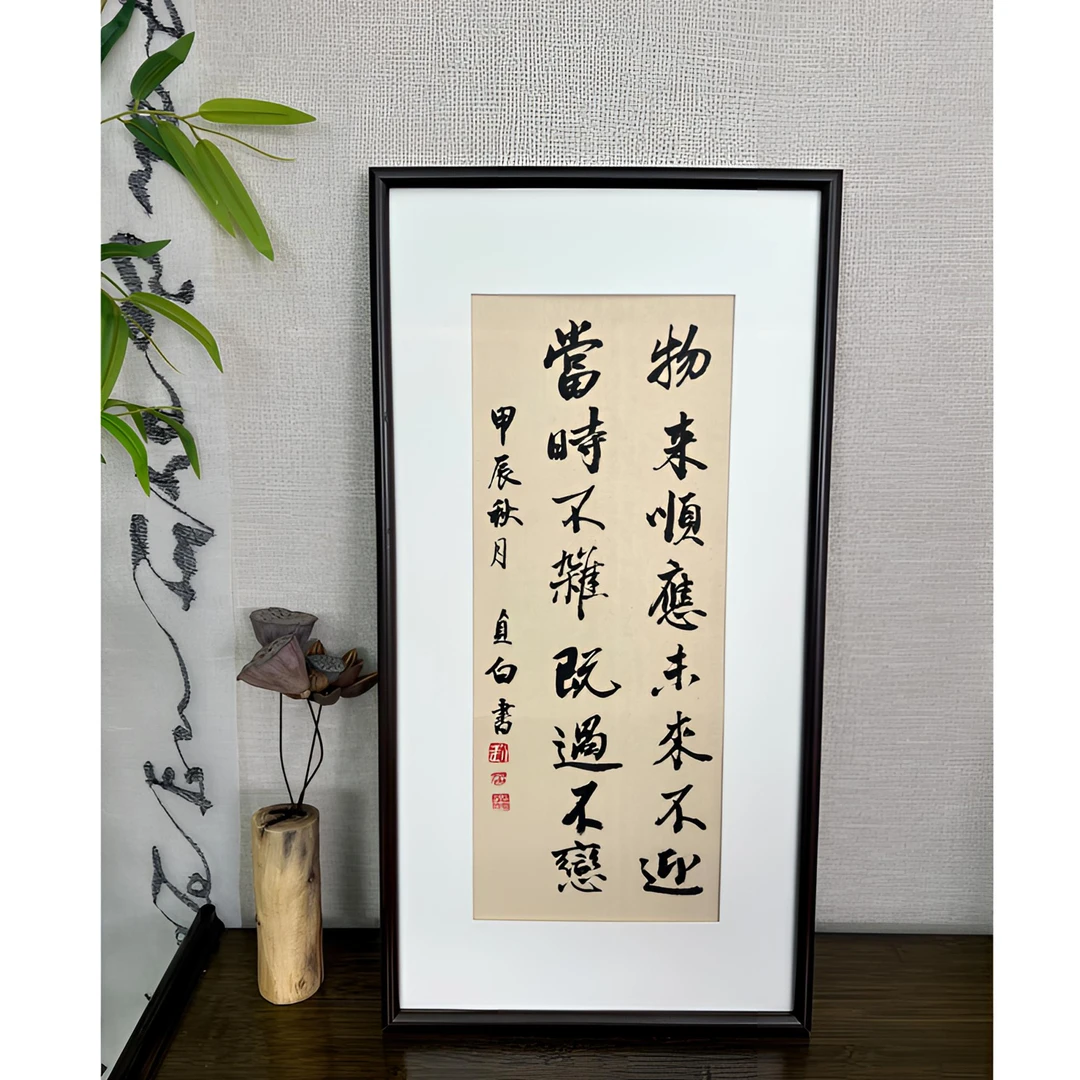 物来順應未來不迎
當時不雜既過不戀
甲辰秋月 白書